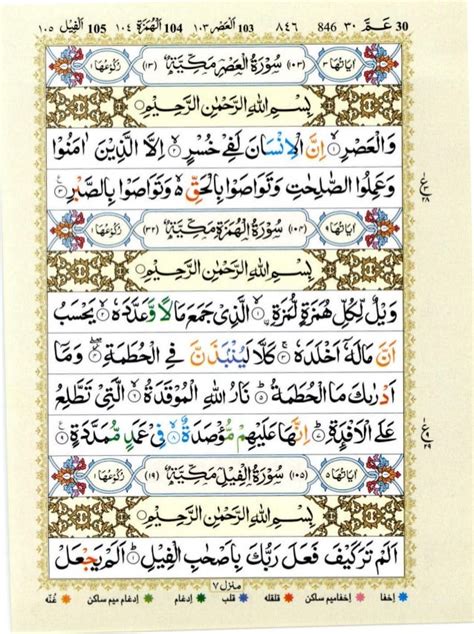 عَمَّ ٣٠ 30 846 ٨٤٦ 103 اَلْعَصْر ١٠٣ 104 اَلْهُمَزَة ١٠٤ 105 اَلْفِيْل ١٠٥
اٰيَاتُهَا ٣ (١٠٣) سُوْرَةُ الْعَصْرِ مَكِّيَّةٌ (١٣) رُكُوْعُهَا ١
بِسْمِ اللهِ الرَّحْمٰنِ الرَّحِيْمِ
وَالْعَصْرِ ۙ۱ اِنَّ الْاِنْسَانَ لَفِيْ خُسْرٍ ۙ۲ اِلَّا الَّذِيْنَ اٰمَنُوْا
وَعَمِلُوا الصّٰلِحٰتِ وَتَوَاصَوْا بِالْحَقِّ ۙ۬ وَتَوَاصَوْا بِالصَّبْرِ ۳
ع ٢٨
اٰيَاتُهَا ٩ (١٠٤) سُوْرَةُ الْهُمَزَةِ مَكِّيَّةٌ (٣٢) رُكُوْعُهَا ١
بِسْمِ اللهِ الرَّحْمٰنِ الرَّحِيْمِ
وَيْلٌ لِّكُلِّ هُمَزَةٍ لُّمَزَةِ ۙ۱ اۨلَّذِيْ جَمَعَ مَالًا وَّعَدَّدَهٗ ۙ۲ يَحْسَبُ
اَنَّ مَالَهٗٓ اَخْلَدَهٗ ۚ۳ كَلَّا لَيُنْۢبَذَنَّ فِي الْحُطَمَةِ ۖ۴ وَمَآ
اَدْرٰىكَ مَا الْحُطَمَةُ ۵ نَارُ اللهِ الْمُوْقَدَةُ ۙ۶ الَّتِيْ تَطَّلِعُ
عَلَى الْاَفْـِٕدَةِ ۷ اِنَّهَا عَلَيْهِمْ مُّؤْصَدَةٌ ۙ۸ فِيْ عَمَدٍ مُّمَدَّدَةٍ ۹
ع ٢٩
اٰيَاتُهَا ٥ (١٠٥) سُوْرَةُ الْفِيْلِ مَكِّيَّةٌ (١٩) رُكُوْعُهَا ١
بِسْمِ اللهِ الرَّحْمٰنِ الرَّحِيْمِ
اَلَمْ تَرَ كَيْفَ فَعَلَ رَبُّكَ بِاَصْحٰبِ الْفِيْلِ ۱ اَلَمْ يَجْعَلْ
منزل ٧
إخفا إخفاميم ساكن قلقله قلب إدغام إدغام ميم ساكن غُنّه